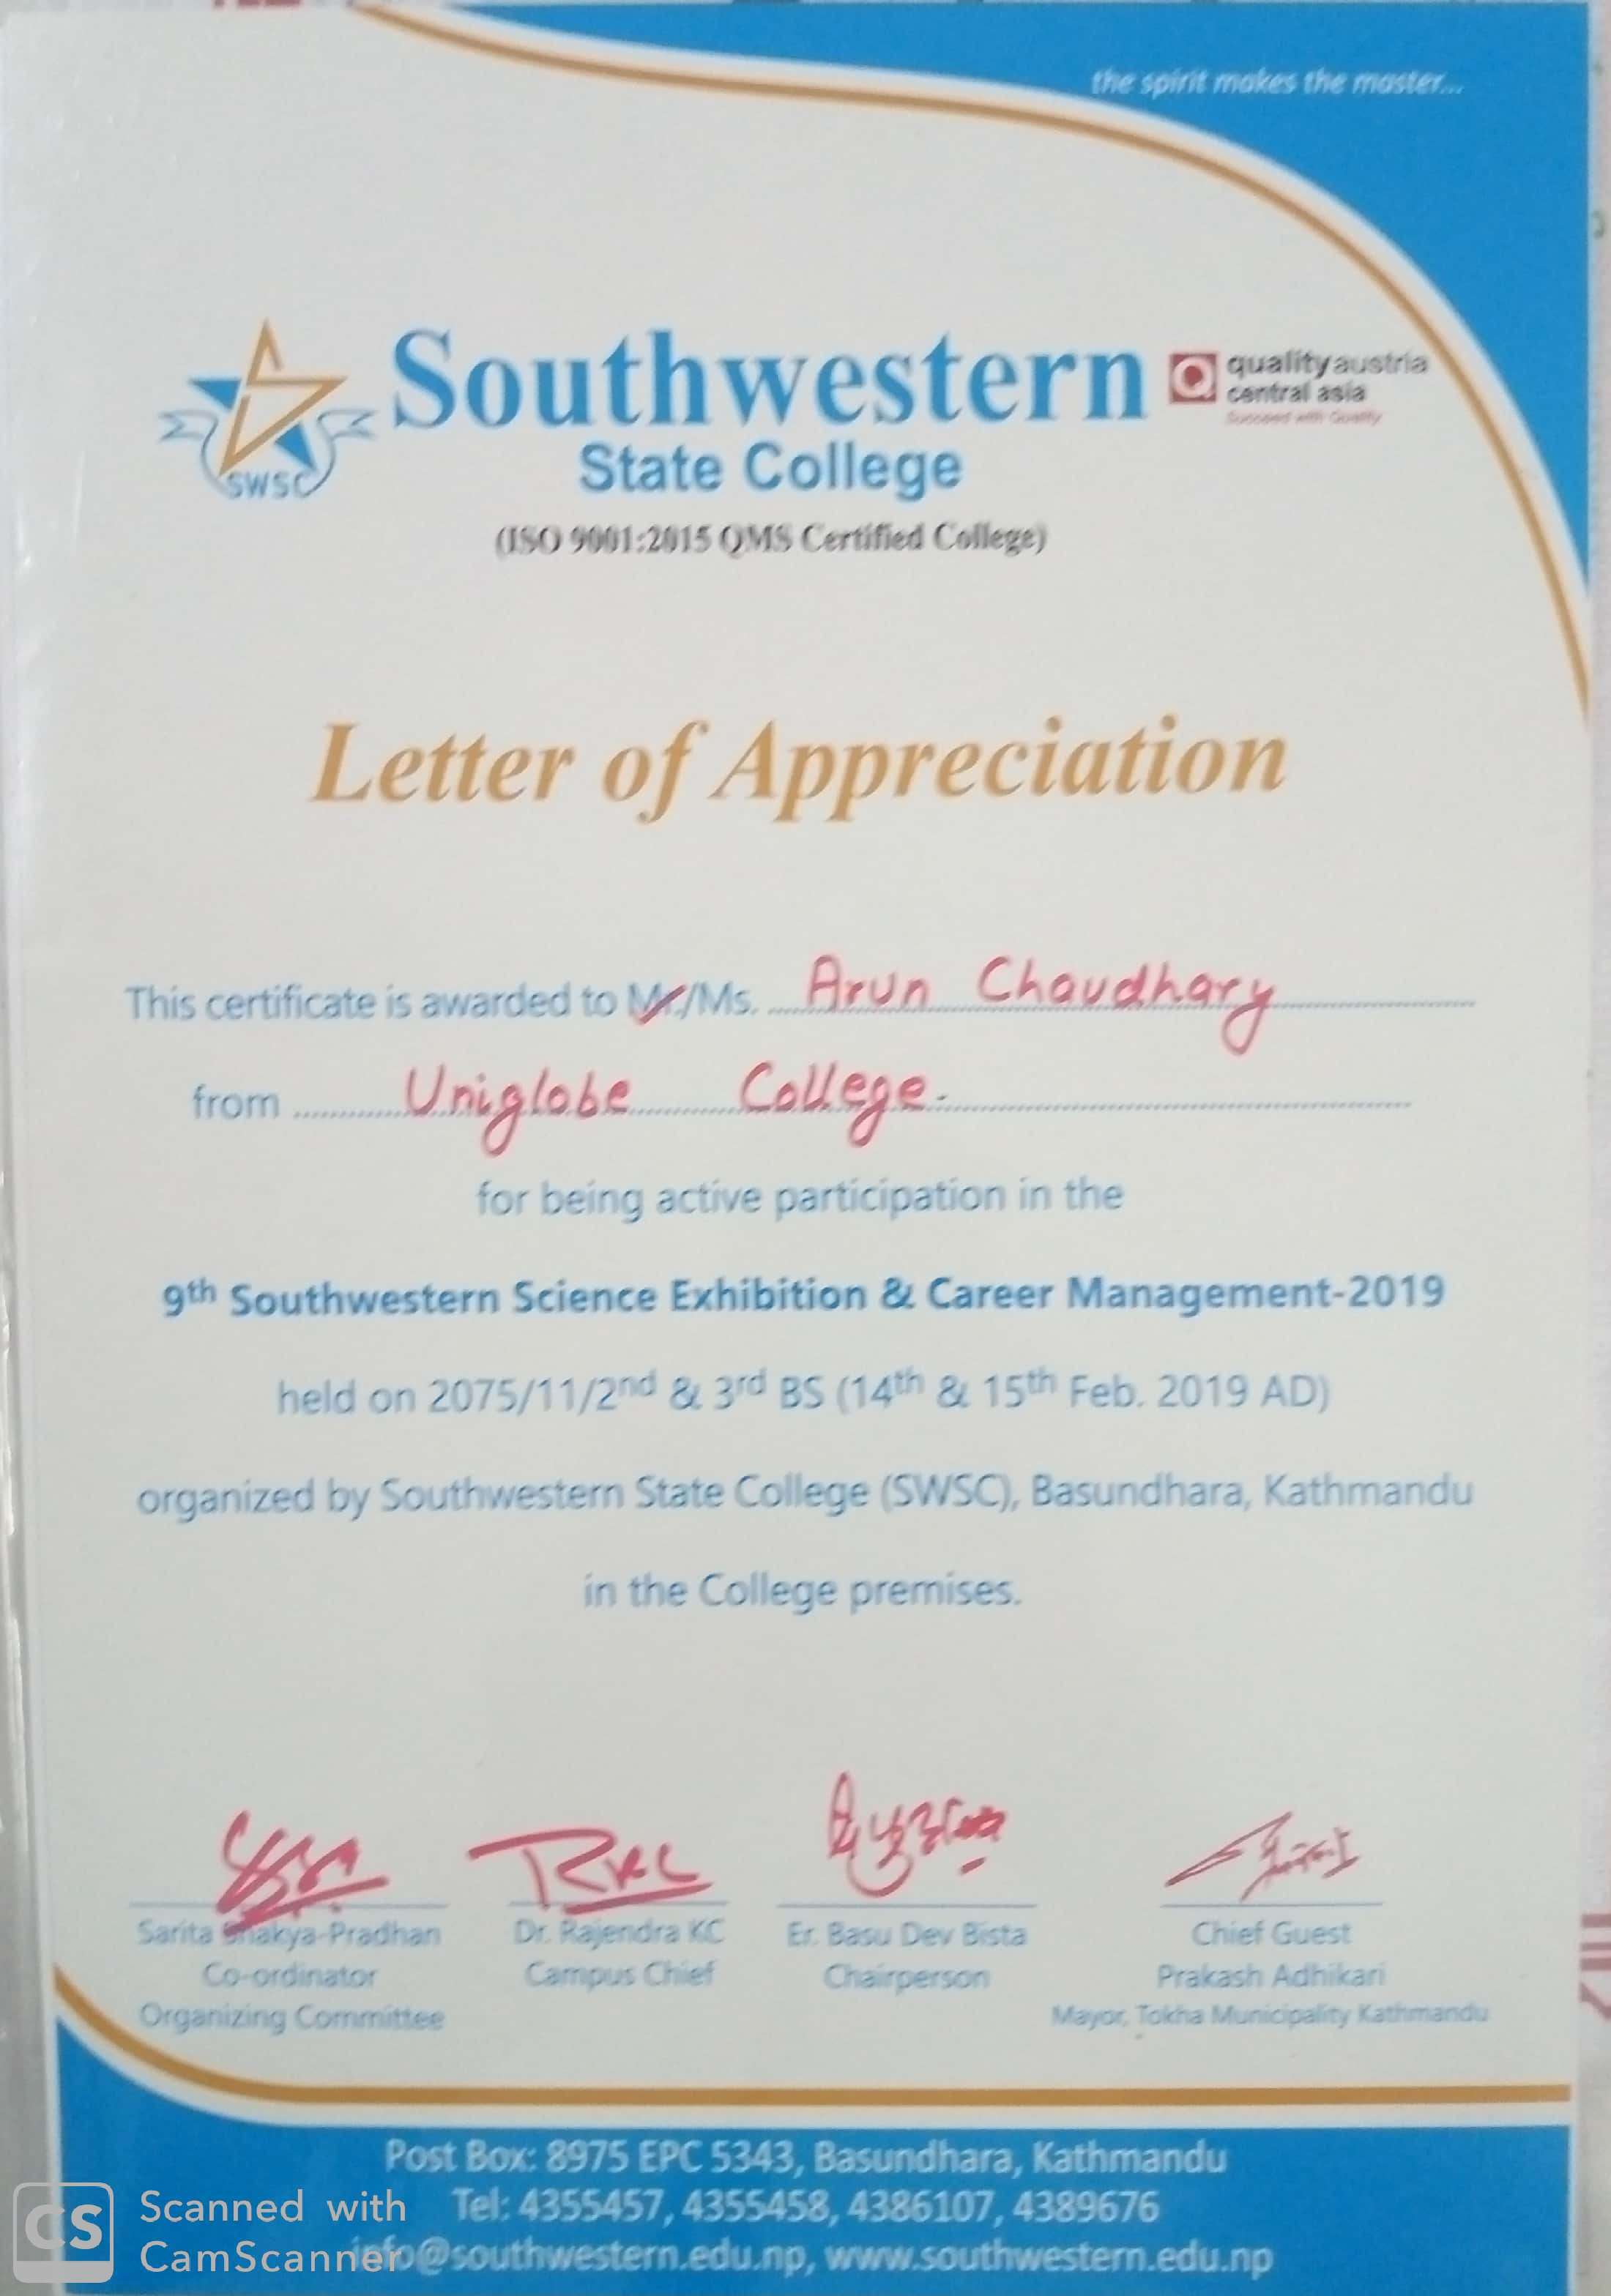 the spirit makes the master...
Southwestern
State College
(ISO 9001:2015 QMS Certified College)
SWSC
qualityaustria
central asia
Succeed with Quality
Letter of Appreciation
This certificate is awarded to Mr./Ms. Arun Chaudhary
from Uniglobe College.
for being active participation in the
9th Southwestern Science Exhibition & Career Management-2019
held on 2075/11/2nd & 3rd BS (14th & 15th Feb. 2019 AD)
organized by Southwestern State College (SWSC), Basundhara, Kathmandu
in the College premises.
RKC
Sarita Shakya-Pradhan
Co-ordinator
Organizing Committee
Dr. Rajendra KC
Campus Chief
Er. Basu Dev Bista
Chairperson
Chief Guest
Prakash Adhikari
Mayor, Tokha Municipality Kathmandu
Post Box: 8975 EPC 5343, Basundhara, Kathmandu
Tel: 4355457, 4355458, 4386107, 4389676
info@southwestern.edu.np, www.southwestern.edu.np
CS
Scanned with
CamScanner